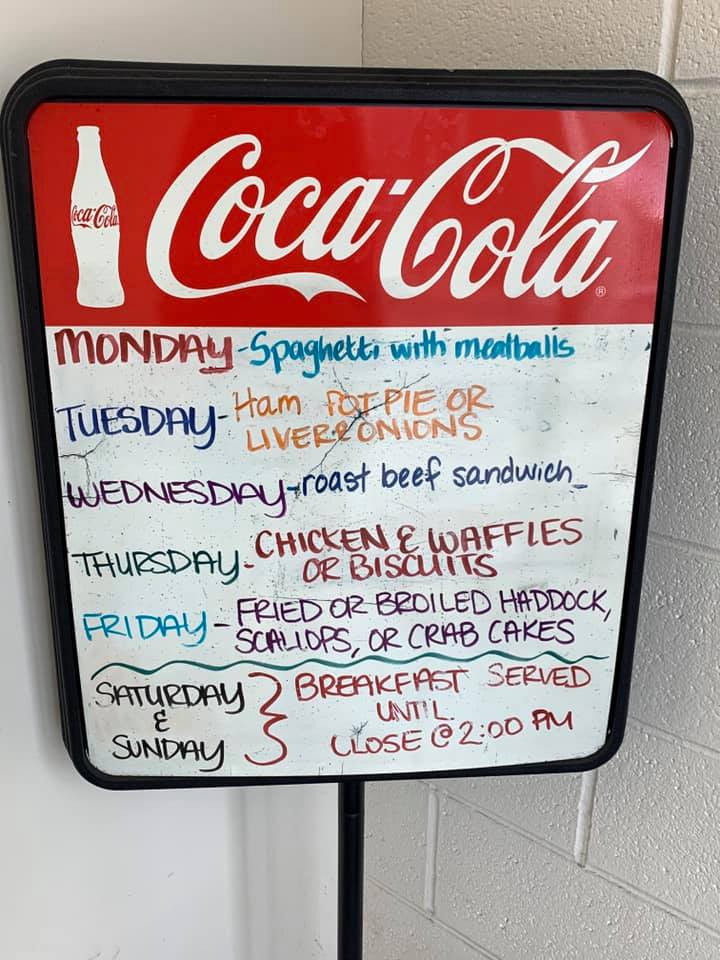 Coca-Cola
Coca-Cola®
MONDAY-Spaghetti with meatballs
TUESDAY-Ham POT PIE OR
LIVER & ONIONS
WEDNESDAY-roast beef sandwich
THURSDAY-CHICKEN & WAFFLES
OR BISCUITS
FRIDAY-FRIED OR BROILED HADDOCK,
SCALLOPS, OR CRAB CAKES
SATURDAY
&
SUNDAY
BREAKFAST SERVED
UNTIL
CLOSE @ 2:00 PM